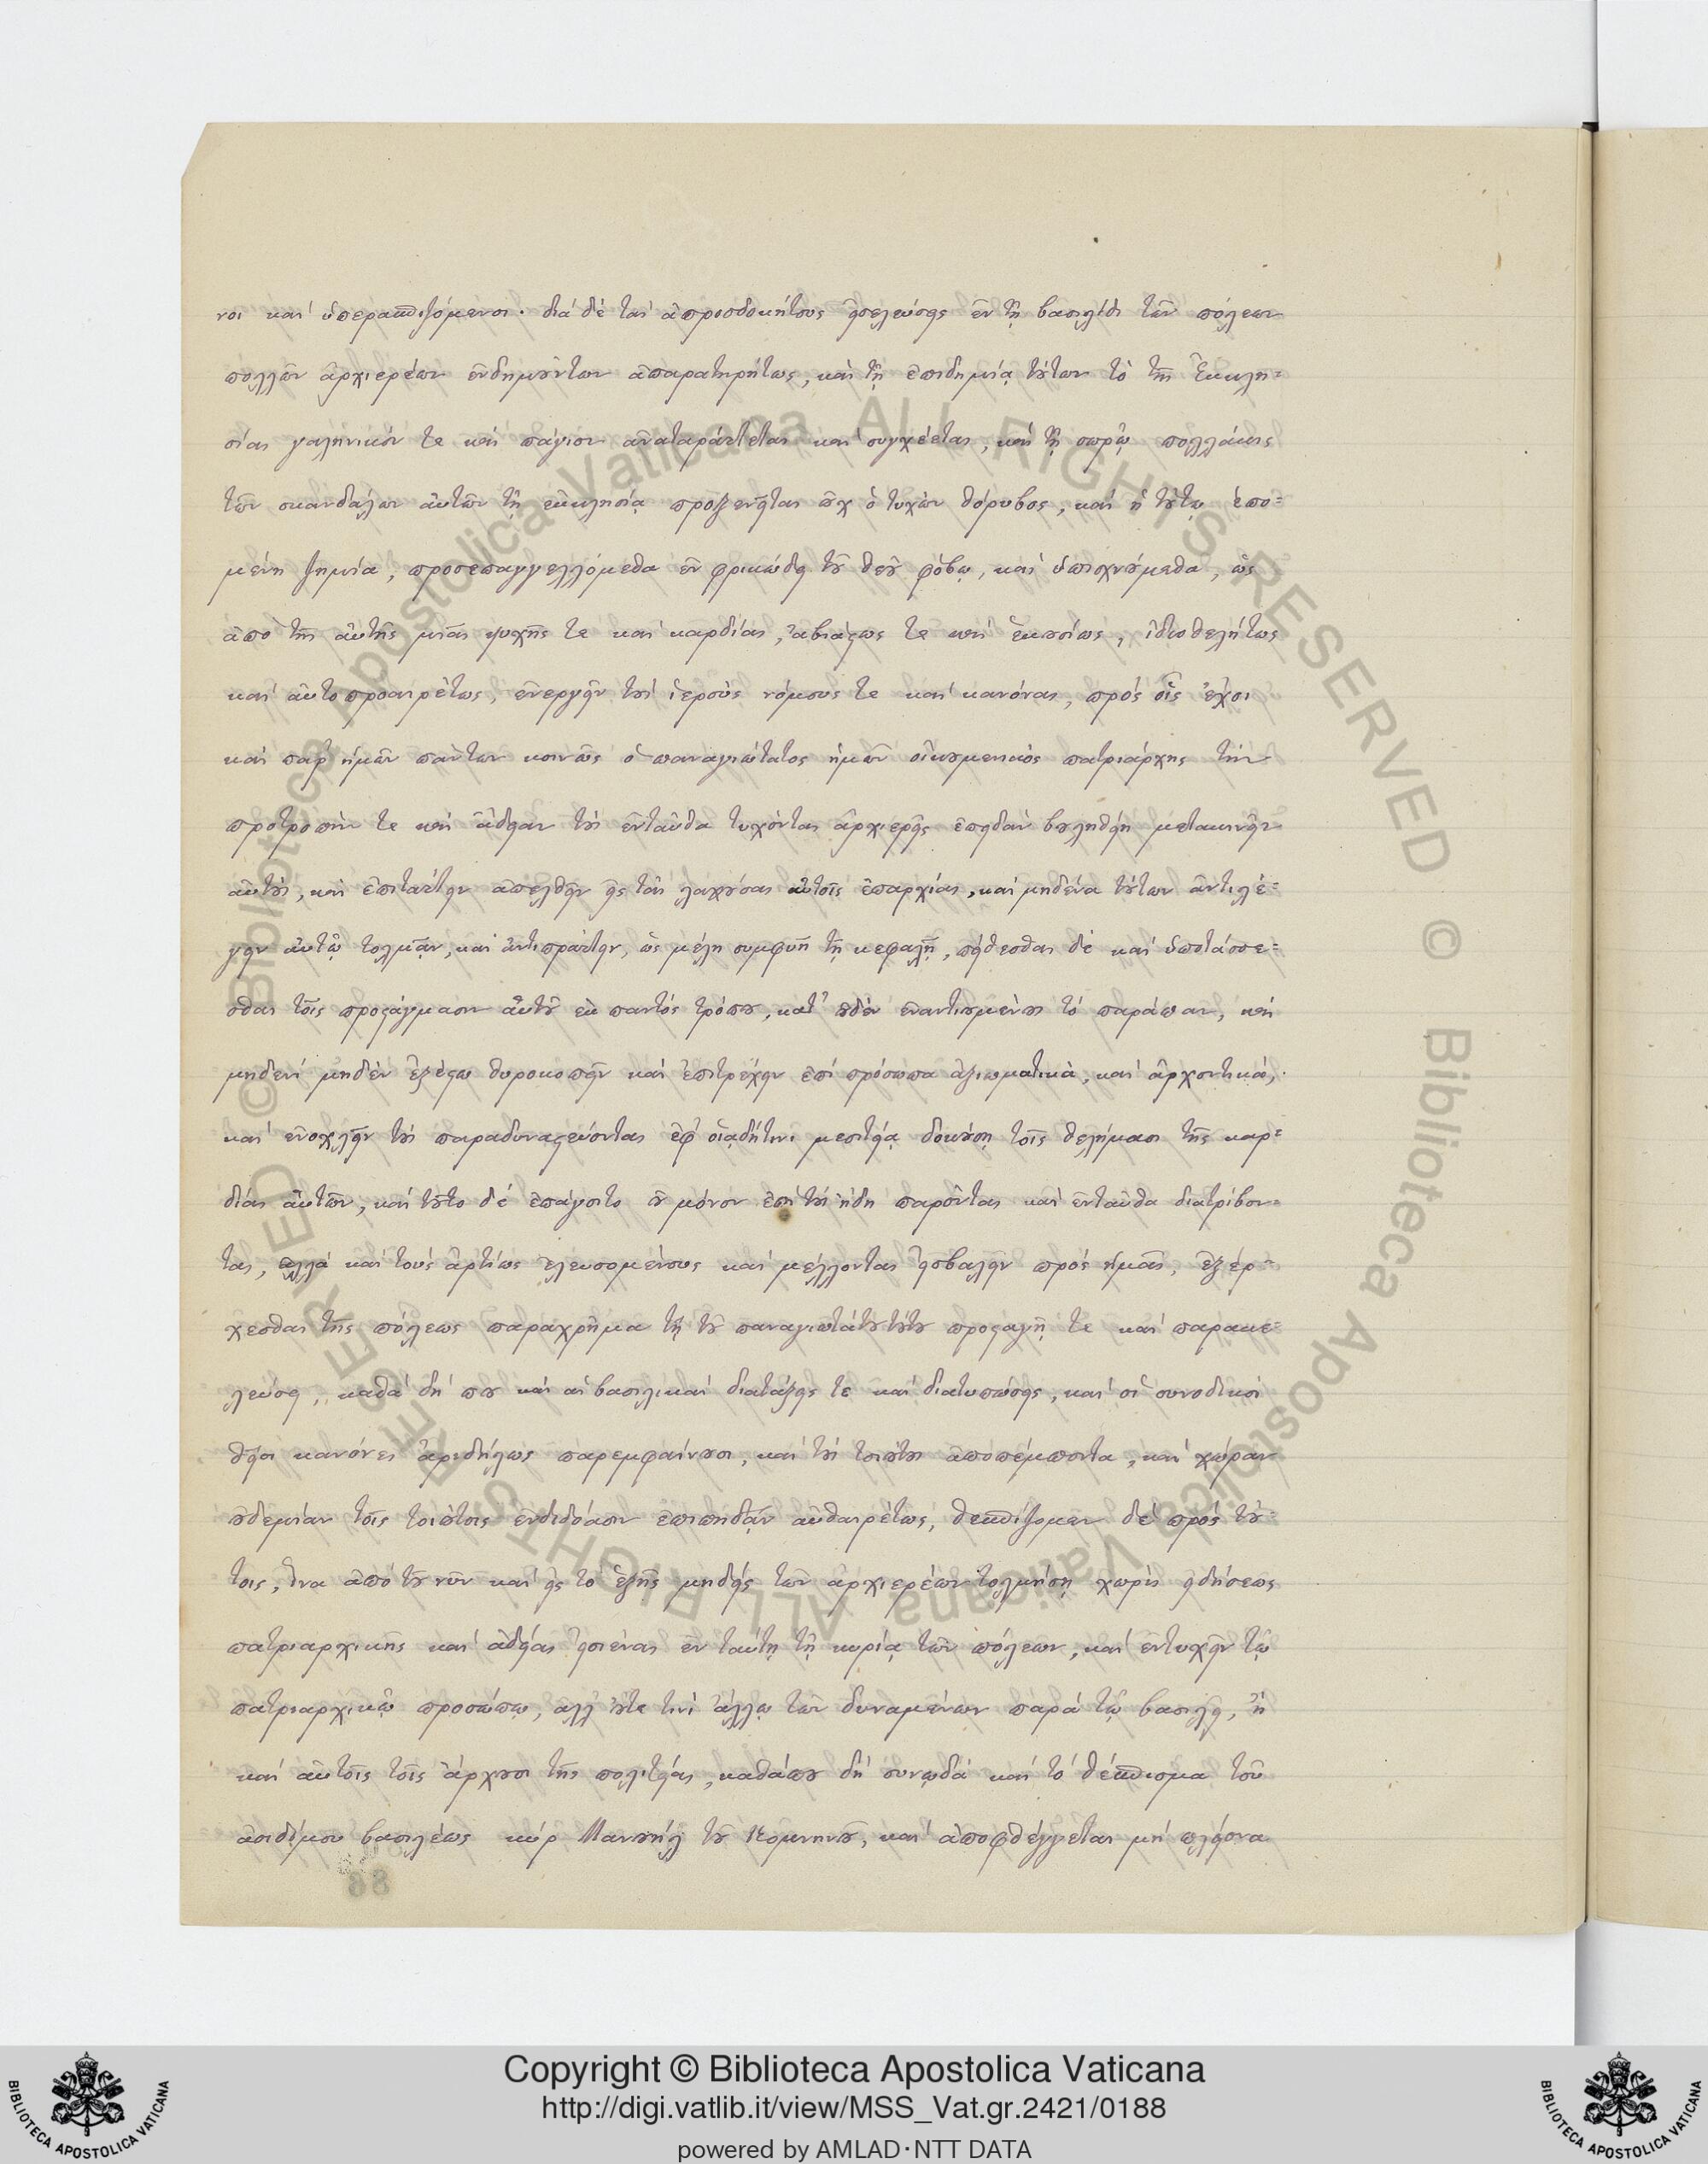 νοι καὶ ὑπερασπιζόμενοι. διὰ δὲ τὰς ἀπροσδοκήτους εἰσελεύσεις ἐν τῇ βασιλίδι τῶν πόλεων
πολλῶν ἀρχιερέων ἐνδημούντων ἀπαρατηρήτως, καὶ τῇ ἐπιδημίᾳ τούτων τὸ τῆς Ἐκκλη=
σίας γαληνικόν τε καὶ πάγιον ἀναταράττεται καὶ συγχέεται, καὶ τῷ σωρῷ πολλάκις
τῶν σκανδάλων αὐτῶν τῇ ἐκκλησίᾳ προξενεῖται οὐχ ὁ τυχὼν θόρυβος, καὶ ἡ τούτῳ ἑπο=
μένη ζημία, προσεπαγγελλόμεθα ἐν φρικώδει τοῦ θεοῦ φόβῳ, καὶ ὑπισχνούμεθα, ὡς
ἀπὸ τῆς αὐτῆς μιᾶς ψυχῆς τε καὶ καρδίας, ἀβιάστως τε καὶ ἑκουσίως, ἰδιοθελήτως
καὶ αὐτοπροαιρέτως, ἐνεργεῖν τοὺς ἱεροὺς νόμους τε καὶ κανόνας, πρὸς οἷς ἔχοι
καὶ παρ' ἡμῶν πάντων κοινῶς ὁ παναγιώτατος ἡμῶν οἰκουμενικὸς πατριάρχης τὴν
προτροπήν τε καὶ ἄδειαν τοὺς ἐνταῦθα τυχόντας ἀρχιερεῖς ἐπειδὰν βουληθείη μετακινεῖν
αὐτούς, καὶ ἐπιτάττειν ἀπελθεῖν εἰς τὰς λαχούσας αὐτοῖς ἐπαρχίας, καὶ μηδένα τούτων ἀντιλέ=
γειν αὐτῷ τολμᾶν, καὶ ἀντιπράττειν, ὡς μέλη συμφυῆ τῇ κεφαλῇ, πείθεσθαι δὲ καὶ ὑποτάσσε=
σθαι τοῖς προστάγμασιν αὐτοῦ ἐκ παντὸς τρόπου, κατ' οὐδὲν ἐναντιουμένους τὸ παράπαν, καὶ
μηδενὶ μηδὲν ἐξέστω θυροκοπεῖν καὶ ἐπιτρέχειν ἐπὶ πρόσωπα ἀξιωματικά, καὶ ἀρχοντικά,
καὶ ἐνοχλεῖν τοὺς παραδυναστεύοντας ἐφ' οἱᾳδήτινι μεσιτείᾳ δοκούσῃ τοῖς θελήμασι τῆς καρ=
δίας αὐτῶν, καὶ τοῦτο δὲ ἐπάγοιτο οὐ μόνον ἐπὶ τοὺς ἤδη παρόντας καὶ ἐνταῦθα διατρίβον=
τας, ἀλλὰ καὶ τοὺς ἀρτίως ἐλευσομένους καὶ μέλλοντας εἰσβαλεῖν πρὸς ἡμᾶς, ἐξέρ=
χεσθαι τῆς πόλεως παραχρῆμα τῇ τοῦ παναγιωτάτου τούτου προσταγῇ τε καὶ παρακε=
λεύσει, καθὰ δή που καὶ αἱ βασιλικαὶ διατάξεις τε καὶ διατυπώσεις, καὶ οἱ συνοδικοὶ
θεῖοι κανόνες ἀριδήλως παρεμφαίνουσι, καὶ τοὺς τοιούτους ἀποπέμπονται, καὶ χώραν
οὐδεμίαν τοῖς τοιούτοις ἐνδιδόασιν ἐπιπηδᾷν αὐθαιρέτως, θεσπίζομεν δὲ πρὸς τού=
τοις, ἵνα ἀπὸ τοῦ νῦν καὶ εἰς τὸ ἑξῆς μηδεὶς τῶν ἀρχιερέων τολμήσῃ χωρὶς εἰδήσεως
πατριαρχικῆς καὶ ἀδείας εἰσιέναι ἐν ταύτῃ τῇ κυρίᾳ τῶν πόλεων, καὶ ἐντυχεῖν τῷ
πατριαρχικῷ προσώπῳ, ἀλλ' οὔτε τινὶ ἄλλῳ τῶν δυναμένων παρὰ τῷ βασιλεῖ, ἢ
καὶ αὐτοῖς τοῖς ἄρχουσι τῆς πολιτείας, καθάπου δὴ συνῳδὰ καὶ τὸ θέσπισμα τοῦ
ἀοιδίμου βασιλέως κύρ Μανουὴλ τοῦ Κομνηνοῦ, καὶ ἀποφθέγγεται μὴ πλείονα
86
Copyright © Biblioteca Apostolica Vaticana
http://digi.vatlib.it/view/MSS_Vat.gr.2421/0188
powered by AMLAD·NTT DATA
BIBLIOTECA APOSTOLICA VATICANA
BIBLIOTECA APOSTOLICA VATICANA
© Biblioteca Apostolica Vaticana ALL RIGHTS RESERVED © Biblioteca Apostolica Vaticana ALL RIGHTS RESERVED